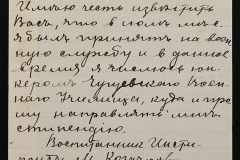 Имѣю честь извѣстить
Васъ, что в
я былъ принятъ на воен-
ную службу и в данное
время я числюсь юн-
керомъ Чугуевскаго Воен-
наго Училища, куда и про-
шу направлять мнѣ
стипендію.
Воспитанник Инсти-